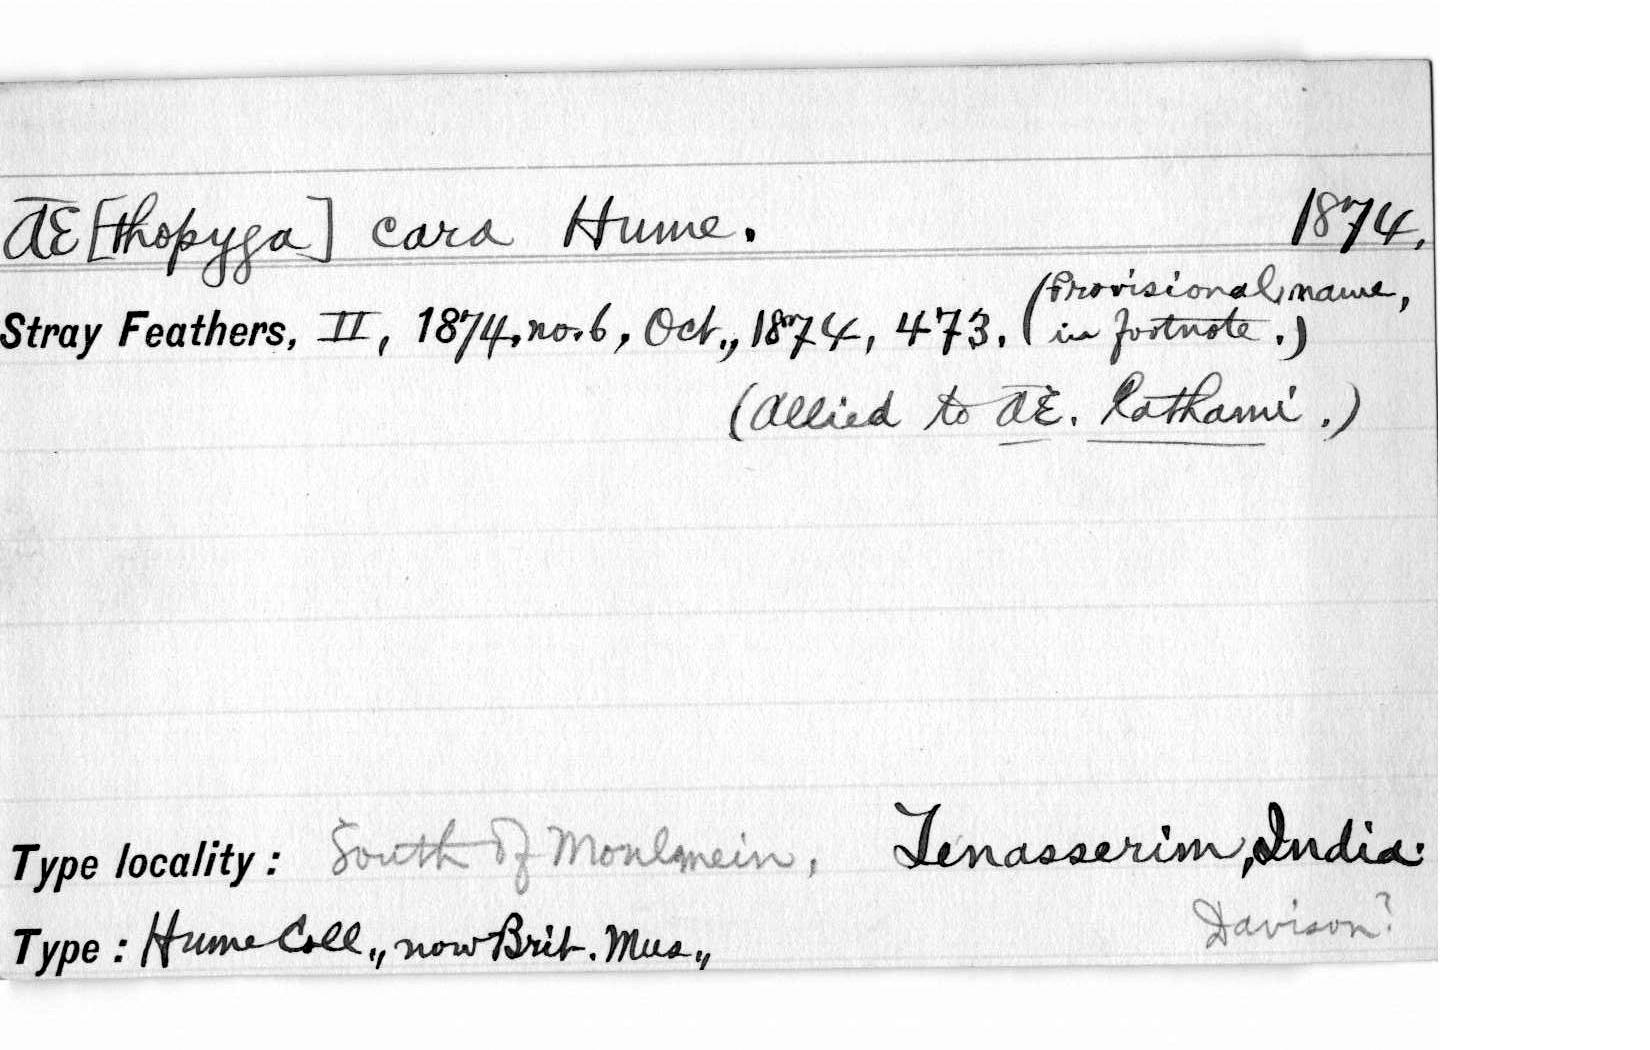 Æ[thopyga] cara Hume. 1874.
Stray Feathers, II, 1874, no. 6, Oct., 1874, 473. (Provisional name, in footnote.)
(Allied to Æ. lathami.)
Type locality: South of Moulmein, Tenasserim, India.
Davison?
Type: Hume Coll., now Brit. Mus.,